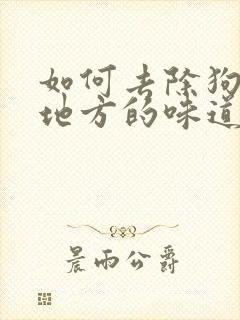 如何去除狗
地方的味道
晨雨公爵